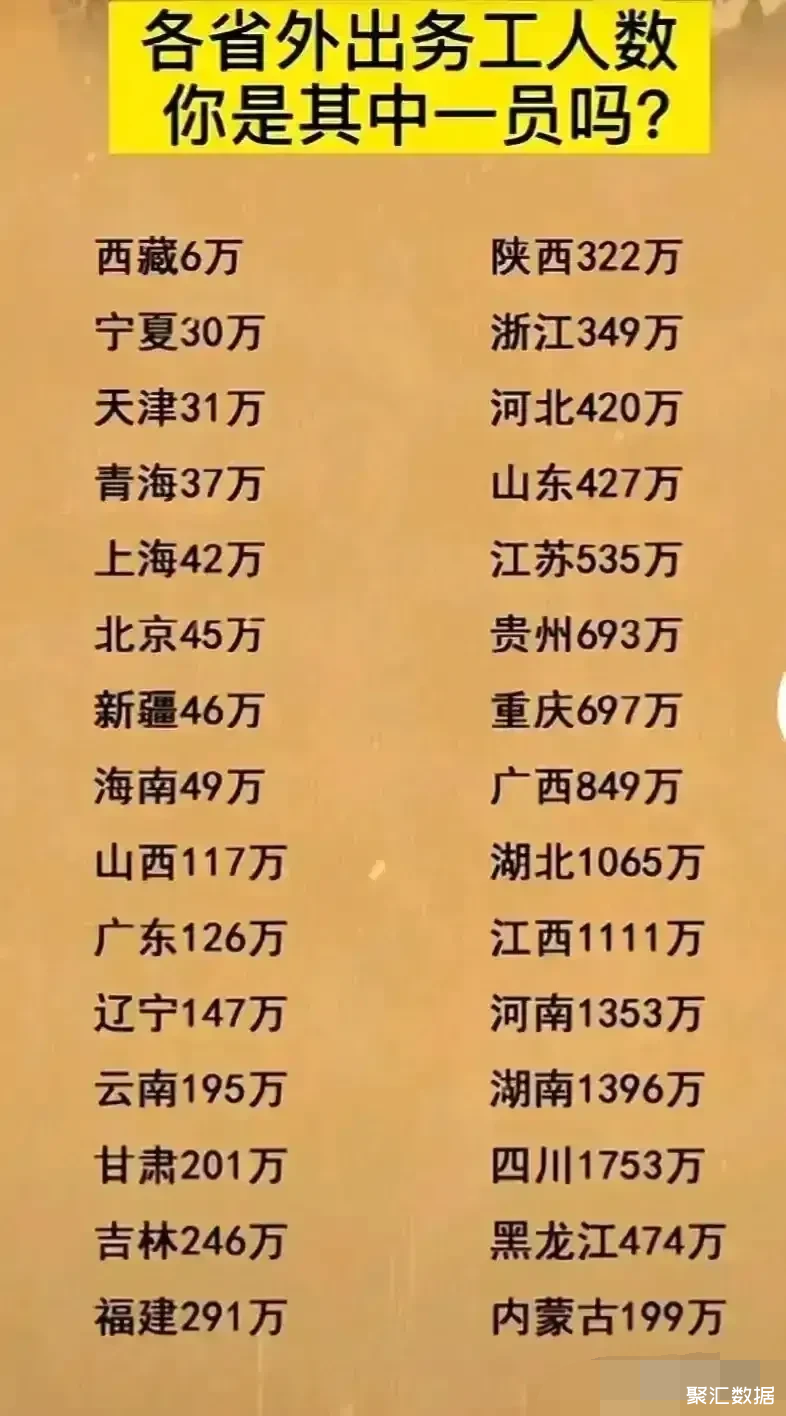 各省外出务工人数
你是其中一员吗?
西藏6万
宁夏30万
天津31万
青海37万
上海42万
北京45万
新疆46万
海南49万
山西117万
广东126万
辽宁147万
云南195万
甘肃201万
吉林246万
福建291万
陕西322万
浙江349万
河北420万
山东427万
江苏535万
贵州693万
重庆697万
广西849万
湖北1065万
江西1111万
河南1353万
湖南1396万
四川1753万
黑龙江474万
内蒙古199万
聚汇数据